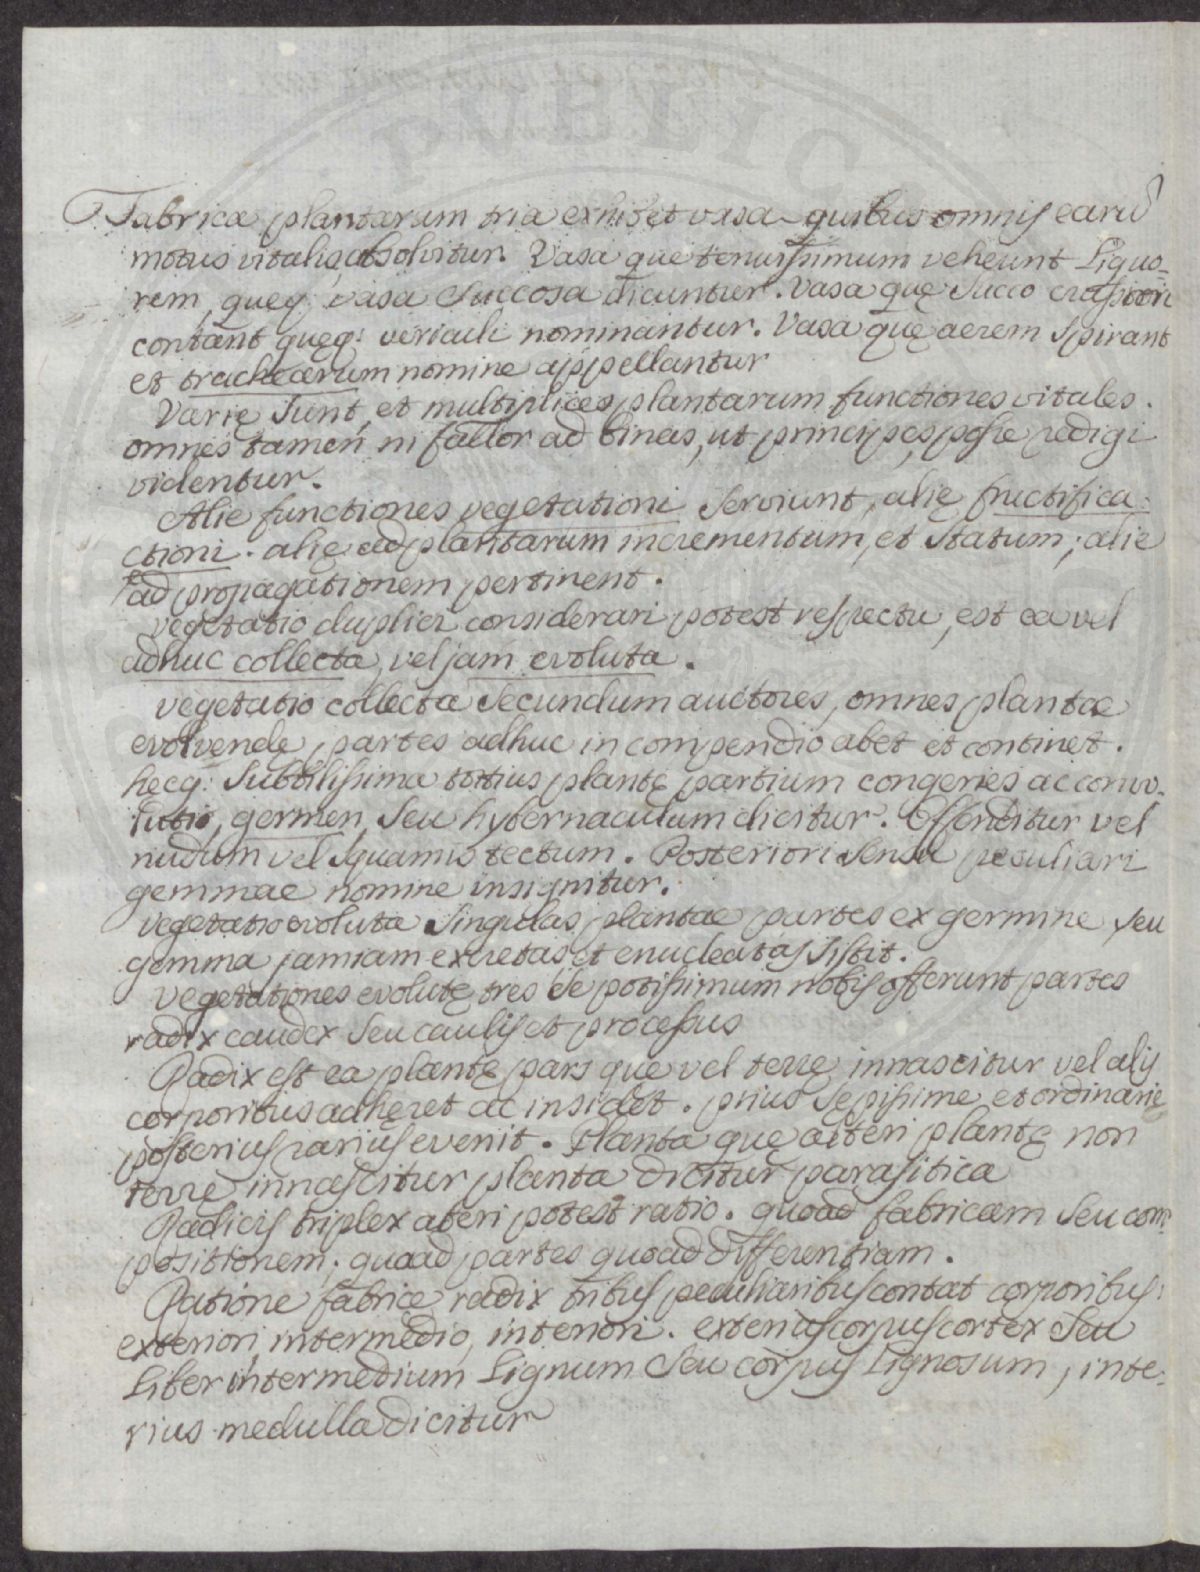 Fabrica plantarum tria exhibet vasa quibus omnis earū
motus vitalis absolvitur. Vasa que tenuissimum veheunt Liquo-
rem, queq; vasa Succosa dicuntur. Vasa quę Succo crassiori
contant quęq: utriculi nominantur. Vasa quę aerem Spirant
et trachearum nomine appellantur
Varię Sunt, et multiplices plantarum functiones vitales.
omnes tamen ni fallor ad binas, ut principes, posse redigi
videntur.
Alie functiones vegetationi Serviunt, alię fructifica-
ctioni. alię ad plantarum incrementum, et Statum; alie
ad propagationem pertinent.
vegetatio duplici considerari potest respectu, est ea vel
adhuc collecta, vel jam evoluta.
vegetatio collecta Secundum auctores, omnes plantae
evolvende, partes adhuc in compendio abet et continet.
hecq: Subtilissima totius plantę partium congeries ac convo-
lutio, germen, Seu hybernaculum dicitur. Offenditur vel
nudum vel Squamis tectum. Posteriori Sensu peculiari
gemmae nomine insignitur.
vegetatio evoluta Singulas plantae partes ex germine seu
gemma jamiam excretas et enucleatas Sistit.
vegetationes evolutę tres Se potissimum nobis offerunt partes
radix caudex Seu caulis et processus
Radix est ea plantę pars que vel terrę innascitur vel alijs
corporibus adhęret ac insidet. prius Sępissime, et ordinarię
posterius rarius evenit. Planta quę alteri plantę non
terrę innascitur planta dicitur parasitica
Radicis triplex aberi potest ratio. quoad fabricam Seu com-
positionem; quoad partes quoad differentiam.
Ratione fabrice radix tribus peculiaribus contat corporibus:
exteriori, intermedio, interiori. exterius corpus cortex Seu
Liber intermedium Lignum Seu corpus Lignosum, inte-
rius medulla dicitur